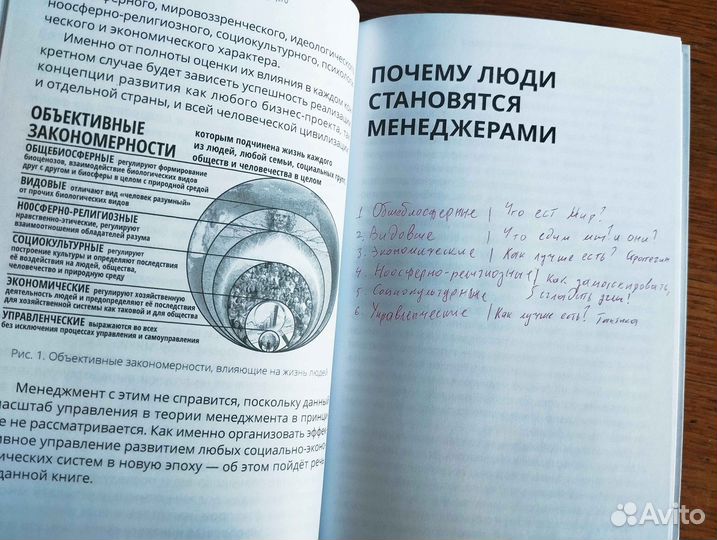 ферного, мировоззренческого, идеологического
ноосферно-религиозного, социокультурного, психоло
ческого и экономического характера.
Именно от полноты оценки их влияния в каждом кон
кретном случае будет зависеть успешность реализации
концепции развития как любого бизнес-проекта, так
и отдельной страны, и всей человеческой цивилизации
ОБЪЕКТИВНЫЕ
ЗАКОНОМЕРНОСТИ
которым подчинена жизнь каждого
из людей, любой семьи, социальных групп,
обществ и человечества в целом
ОБЩЕБИОСФЕРНЫЕ регулируют формирование
биоценозов, взаимодействие биологических видов
друг с другом и биосферы в целом с природной средой
ВИДОВЫЕ отличают вид «человек разумный»
от прочих биологических видов
НООСФЕРНО-РЕЛИГИОЗНЫЕ
нравственно-этические, регулируют
взаимоотношения обладателей разума
СОЦИОКУЛЬТУРНЫЕ регулируют
построение культуры и определяют последствия
её воздействия на людей, общества,
человечество и природную среду
ЭКОНОМИЧЕСКИЕ регулируют хозяйственную
деятельность людей и предопределяют её последствия
для хозяйственной системы как таковой и для общества
УПРАВЛЕНЧЕСКИЕ выражаются во всех
без исключения процессах управления и самоуправления
Рис. 1. Объективные закономерности, влияющие на жизнь людей
Менеджмент с этим не справится, поскольку данный
масштаб управления в теории менеджмента в принци
е не рассматривается. Как именно организовать эффек
ивное управление развитием любых социально-эконо
ических систем в новую эпоху — об этом пойдёт речь
данной книге.
ПОЧЕМУ ЛЮДИ
СТАНОВЯТСЯ
МЕНЕДЖЕРАМИ
1. Общебиосферные | Что есть Мир?
2. Видовые | Что едим мы? и они?
3. Экономические | Как лучше есть? Стратегия
4. Ноосферно-религиозные | Как
5. Социокультурные
6. Управленческие | Как лучше есть? Тактика
Avito